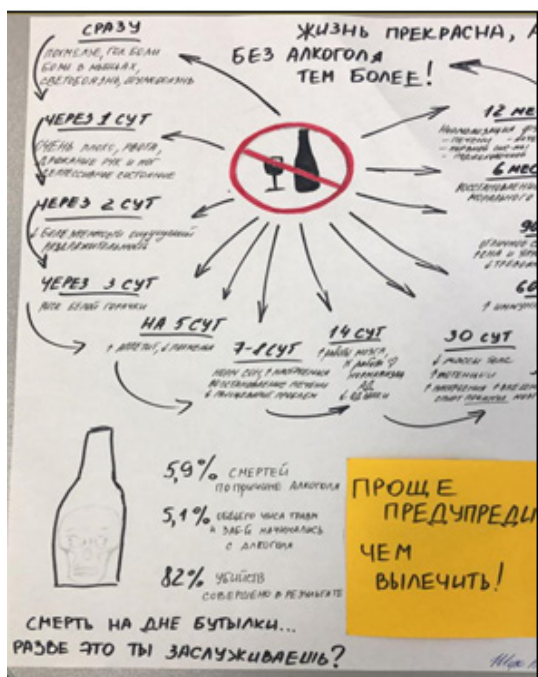 ЖИЗНЬ ПРЕКРАСНА, А
БЕЗ АЛКОГОЛЯ
ТЕМ БОЛЕЕ!
СРАЗУ
ПОХМЕЛЬЕ, ГОЛ. БОЛИ
БОЛИ В МЫШЦАХ,
СВЕТОБОЯЗНЬ,
ЧЕРЕЗ 1 СУТ
ОЧЕНЬ ПЛОХО, РВОТА,
ДРОЖАНИЕ РУК И НОГ
ДЕПРЕССИВНОЕ СОСТОЯНИЕ
ЧЕРЕЗ 2 СУТ
↓ БОЛЕЗНЕННОСТИ ОЩУЩЕНИЙ
ЧЕРЕЗ 3 СУТ
РИСК БЕЛОЙ ГОРЯЧКИ
НА 5 СУТ
↑ АППЕТИТ, ↓
7-8 СУТ
НОРМ СОН, ↑ НАСТРОЕНИЯ
ВОССТАНОВЛЕНИЕ ПЕЧЕНИ
↓ ПРОБЛЕМ
14 СУТ
↑ РАБОТЫ МОЗГА,
НОРМАЛИЗАЦИЯ
АД
↓ ОДЫШКИ
30 СУТ
↓ МАССЫ ТЕЛА
↑ ПОТЕНЦИИ
↑ НАСТРОЕНИЯ
60
↑ ИММУНИ
90
6 МЕС
ВОССТАНОВЛЕНИ
МОРАЛЬНОГО
12 МЕС
НОРМАЛИЗАЦИЯ
- ПЕЧЕНИ
- НЕРВНОЙ
5,9% СМЕРТЕЙ
ПО ПРИЧИНЕ АЛКОГОЛЯ
5,1% ОБЩЕГО ЧИСЛА ТРАВМ
И ЗАБ-Й НАЧИНАЛИСЬ
С АЛКОГОЛЯ
82% УБИЙСТВ
СОВЕРШЕНО В РЕЗУЛЬТАТЕ
ПРОЩЕ
ПРЕДУПРЕДИ
ЧЕМ
ВЫЛЕЧИТЬ!
СМЕРТЬ НА ДНЕ БУТЫЛКИ...
РАЗВЕ ЭТО ТЫ ЗАСЛУЖИВАЕШЬ?